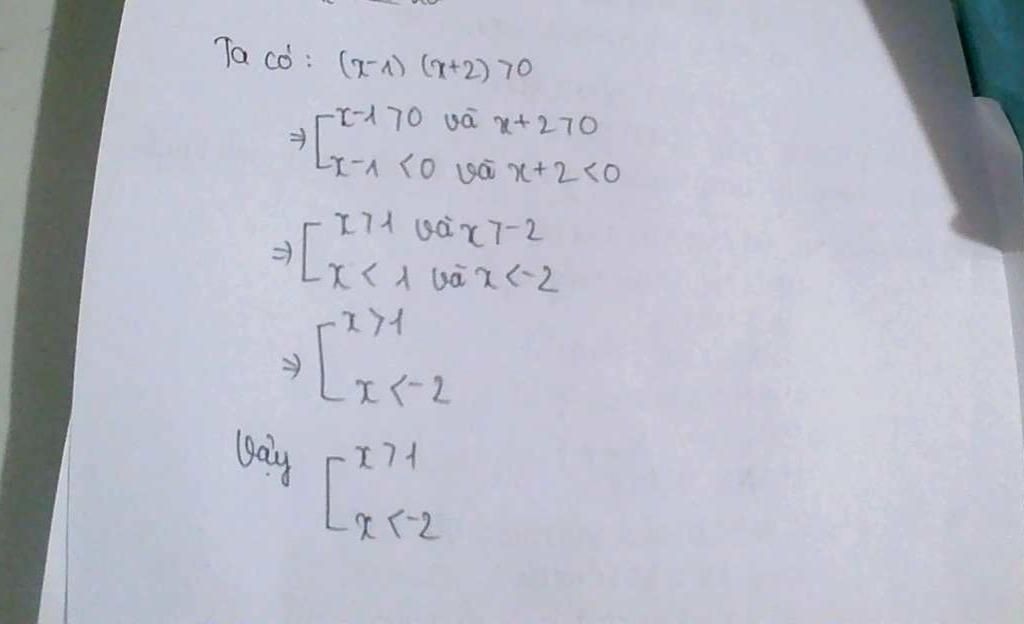 Ta có: (x-1) (x+2) >0
⇒ [ x-1 >0 và x+2 >0
x-1 <0 và x+2 <0
⇒ [ x>1 và x>-2
x < 1 và x <-2
⇒ [ x>1
x <-2
Vậy [ x>1
x <-2